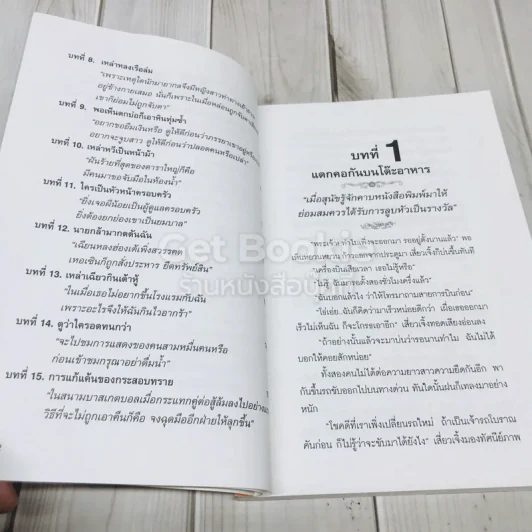 บทที่ 8. เหล่าหลงเรือล่ม
อยู่ข้างกายเสมอ นั่นก็เพราะในเมื่อ
เขาก็ย่อมไม่ถูกจับตา"
บทที่ 9. พอเห็นตกบ่อก็เอาหินทุ่มซ้ำ
"อยากขอยืมเงินหรือ ดูให้ดีก่อนว่าภรรยาเขาอยู่
อยากจะจูบสาว ดูให้ดีก่อนว่าปลอดคนหรือเปล่า"
บทที่ 10. เหล่าหวีเป็นหน้าม้า
"ฝันร้ายที่สุดของดาราใหญ่ก็คือ
มีคนมาขอจับมือในห้องน้ำ"
บทที่ 11. ใครเป็นหัวหน้าครอบครัว
"ยิ่งเจอมีน้อยเป็นผู้ดูแลครอบครัว
ยิ่งต้องยกย่องเขาเป็นยมบาล"
บทที่ 12. นายกล้ามากตสันฉัน
"เฉียนหลงฮ่องเต้เพิ่งสวรรคต
เหอเซินก็ถูกสั่งประหาร ยึดทรัพย์สิน"
บทที่ 13. เหล่าเฉียวกินเต้าหู้
"ในเมื่อเธอไม่อยากขึ้นโรงแรมกับฉัน
เพราะอะไรจึงให้ฉันกินไวอากร้า"
บทที่ 14. ดูว่าใครอดทนกว่า
"จะไปชมการแสดงของคนสามหมื่นคนหรือ
ก่อนเข้าชมกรุณาอย่าดื่มน้ำ"
บทที่ 15. การแก้แค้นของกระสอบทราย
"ในสนามบาสเกตบอลเมื่อกระแทกคู่ต่อสู้ล้มลงไปอย่าง
วิธีที่จะไม่ถูกเอาคืนก็คือ จงฉุดมืออีกฝ่ายให้ลุกขึ้น"
บทที่ 1
แตกคอกันบนโต๊ะอาหาร
"เมื่อสุนัขรู้จักคาบหนังสือพิมพ์มาให้
ย่อมสมควรได้รับการลูบหัวเป็นรางวัล"
"พระเจ้า ทำไมเพิ่งจะออกมา รออยู่ตั้งนานแล้ว" พอ
"เครื่องบินเสียเวลา เธอไม่รู้หรือ"
"ไม่รู้ ฉันมารอตั้งสองชั่วโมงครึ่งแล้ว"
"ฉันบอกแล้วไง ว่าให้โทรมาถามสายการบินก่อน"
"โธ่เอ๊ย ฉันก็คิดว่ามาเร็วหน่อยดีกว่า เผื่อเธอออกมา
เร็วไม่เห็นฉัน ก็จะโกรธเอาอีก" เสี่ยวเจิ้งทอดเสียงอ่อนลง
"ถ้าอย่างนั้นแล้วจะมาบ่นว่ารอนานทำไม ฉันไม่ได้
บอกให้คอยสักหน่อย"
ทั้งสองคนไม่ได้ต่อความยาวสาวความยืดกันอีก พา
กันขึ้นรถขับออกไปบนทางด่วน ทันใดนั้นฝนก็เทลงมาอย่าง
หนัก
"โชคดีที่เราเพิ่งเปลี่ยนรถใหม่ ถ้าเป็นเจ้ารถโบราณ
คันก่อน ก็ไม่รู้ว่าจะขับมาได้ยังไง" เสี่ยวเจิ้งมองทัศนีย์ภาพ
Get Book
ร้านหนังสือ